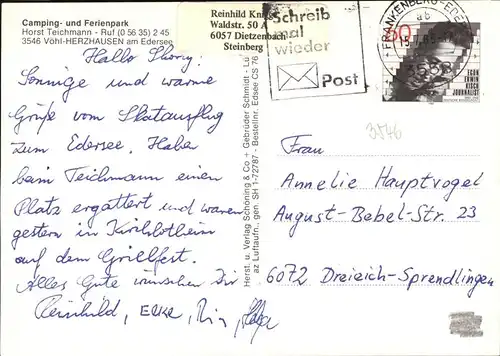 Camping- und Ferienpark
Horst Teichmann - Ruf (0 56 35) 2 45
3546 Vöhl-HERZHAUSEN am Edersee
Hallo
Sonnige und warme
Grüße vom Skatausflug
zum Edersee. Haben
beim Teichmann einen
Platz ergattert und waren
gestern in Kirchlotheim
auf dem Grillfest.
Alles Gute wünschen Dir
Reinhild,
Reinhild
Waldstr. 50 A
6057 Dietzenbach
Steinberg
Schreib
mal
wieder
Post
FRANKENBERG-EDER
60
EGON
ERWIN
KISCH
JOURNALIST
3546
Herst. u. Verlag Schöning & Co + Gebrüder Schmidt - Lü
az Luftaufn. gen. SH 1-72787 - Bestellnr. Edsee CS 76
Frau
Annelie Hauptvogel
August-Bebel-Str. 23
6072 Dreieich-Sprendlingen